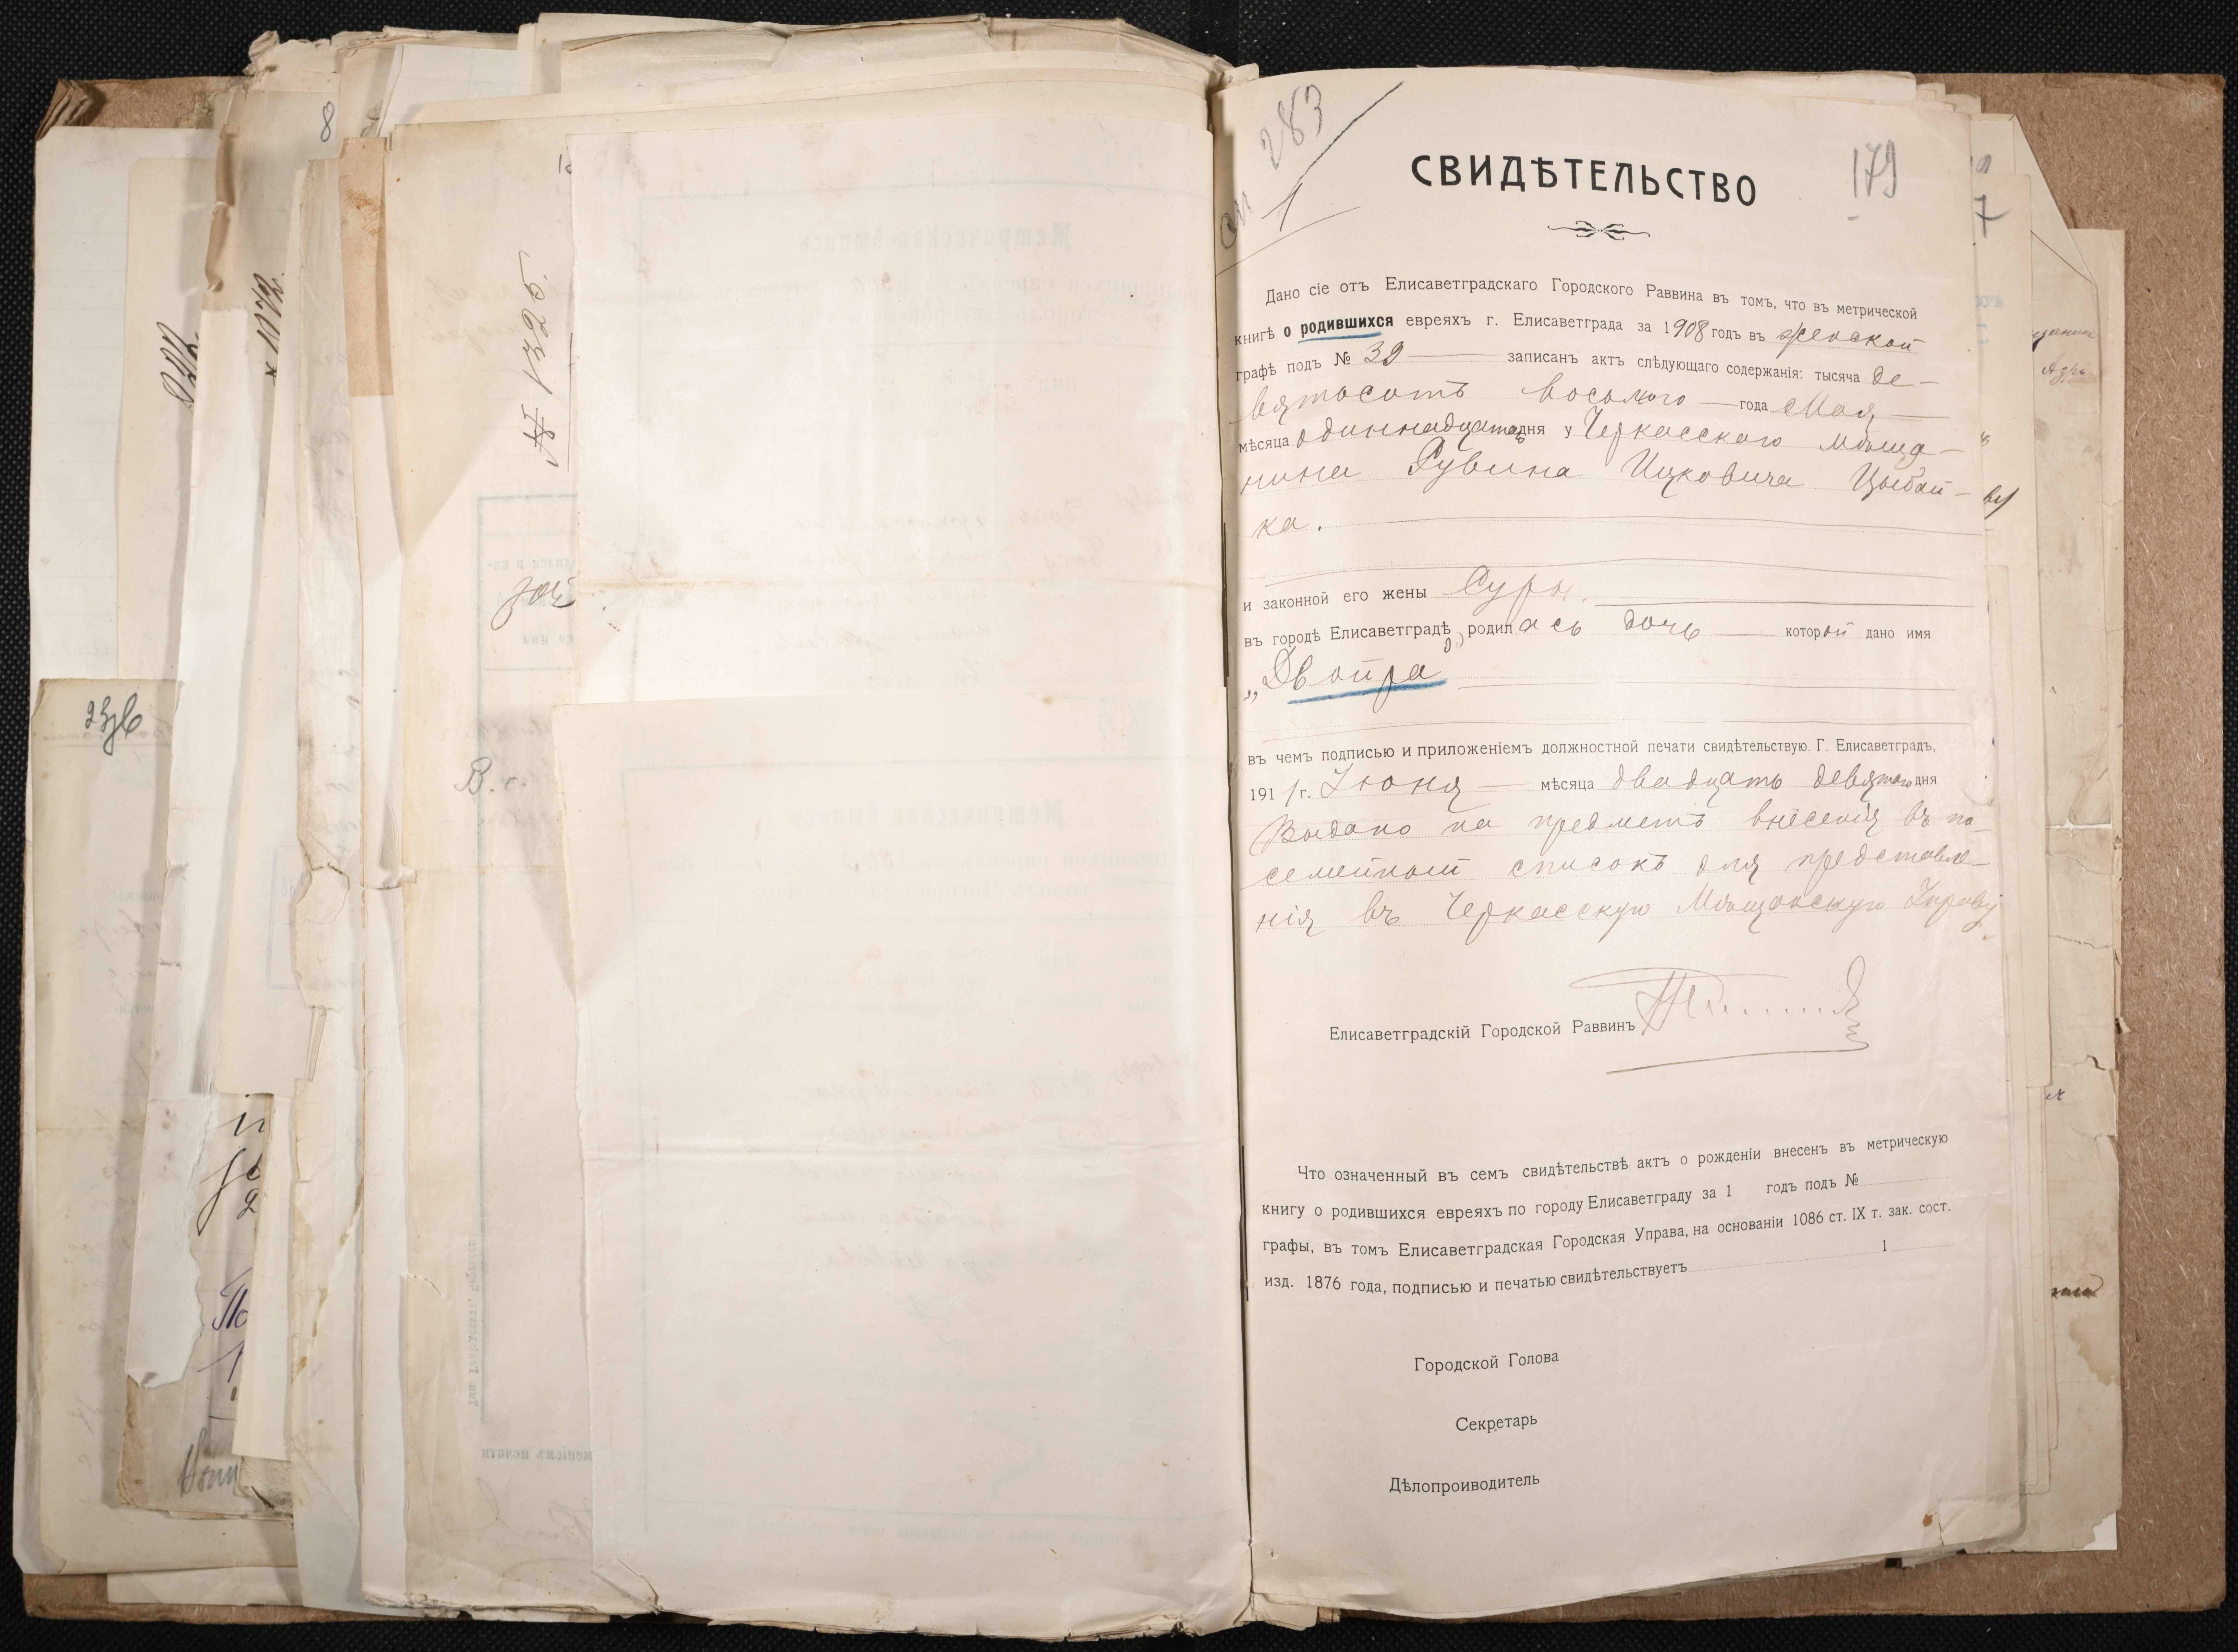 8
№ 1325.
В. с.
283
1
179
7
СВИДѢТЕЛЬСТВО
Дано сіе отъ Елисаветградскаго Городского Раввина въ томъ, что въ метрической
книгѣ о родившихся евреяхъ г. Елисаветграда за 1908 годъ въ женской
графѣ подъ № 39 записанъ актъ слѣдующаго содержанія: тысяча де-
вятьсотъ восьмого года Мая
мѣсяца одиннадцатаго дня у Черкасскаго мѣща-
нина Рувина Ицковича Цыбай-
ка.
и законной его жены Суры.
въ городѣ Елисаветградѣ родилась дочь которой дано имя
„Двойра“
въ чемъ подписью и приложеніемъ должностной печати свидѣтельствую. Г. Елисаветградъ,
1911 г. Іюня мѣсяца двадцать девятаго дня
Выдано на предметъ внесенія въ по-
семейный списокъ для представле-
нія въ Черкасскую Мѣщанскую Управу
Елисаветградскій Городской Раввинъ
Что означенный въ семъ свидѣтельствѣ актъ о рожденіи внесенъ въ метрическую
книгу о родившихся евреяхъ по городу Елисаветграду за 1 годъ подъ №
графы, въ томъ Елисаветградская Городская Управа, на основаніи 1086 ст. IX т. зак. сост.
изд. 1876 года, подписью и печатью свидѣтельствуетъ 1
Городской Голова
Секретарь
Дѣлопроиводитель